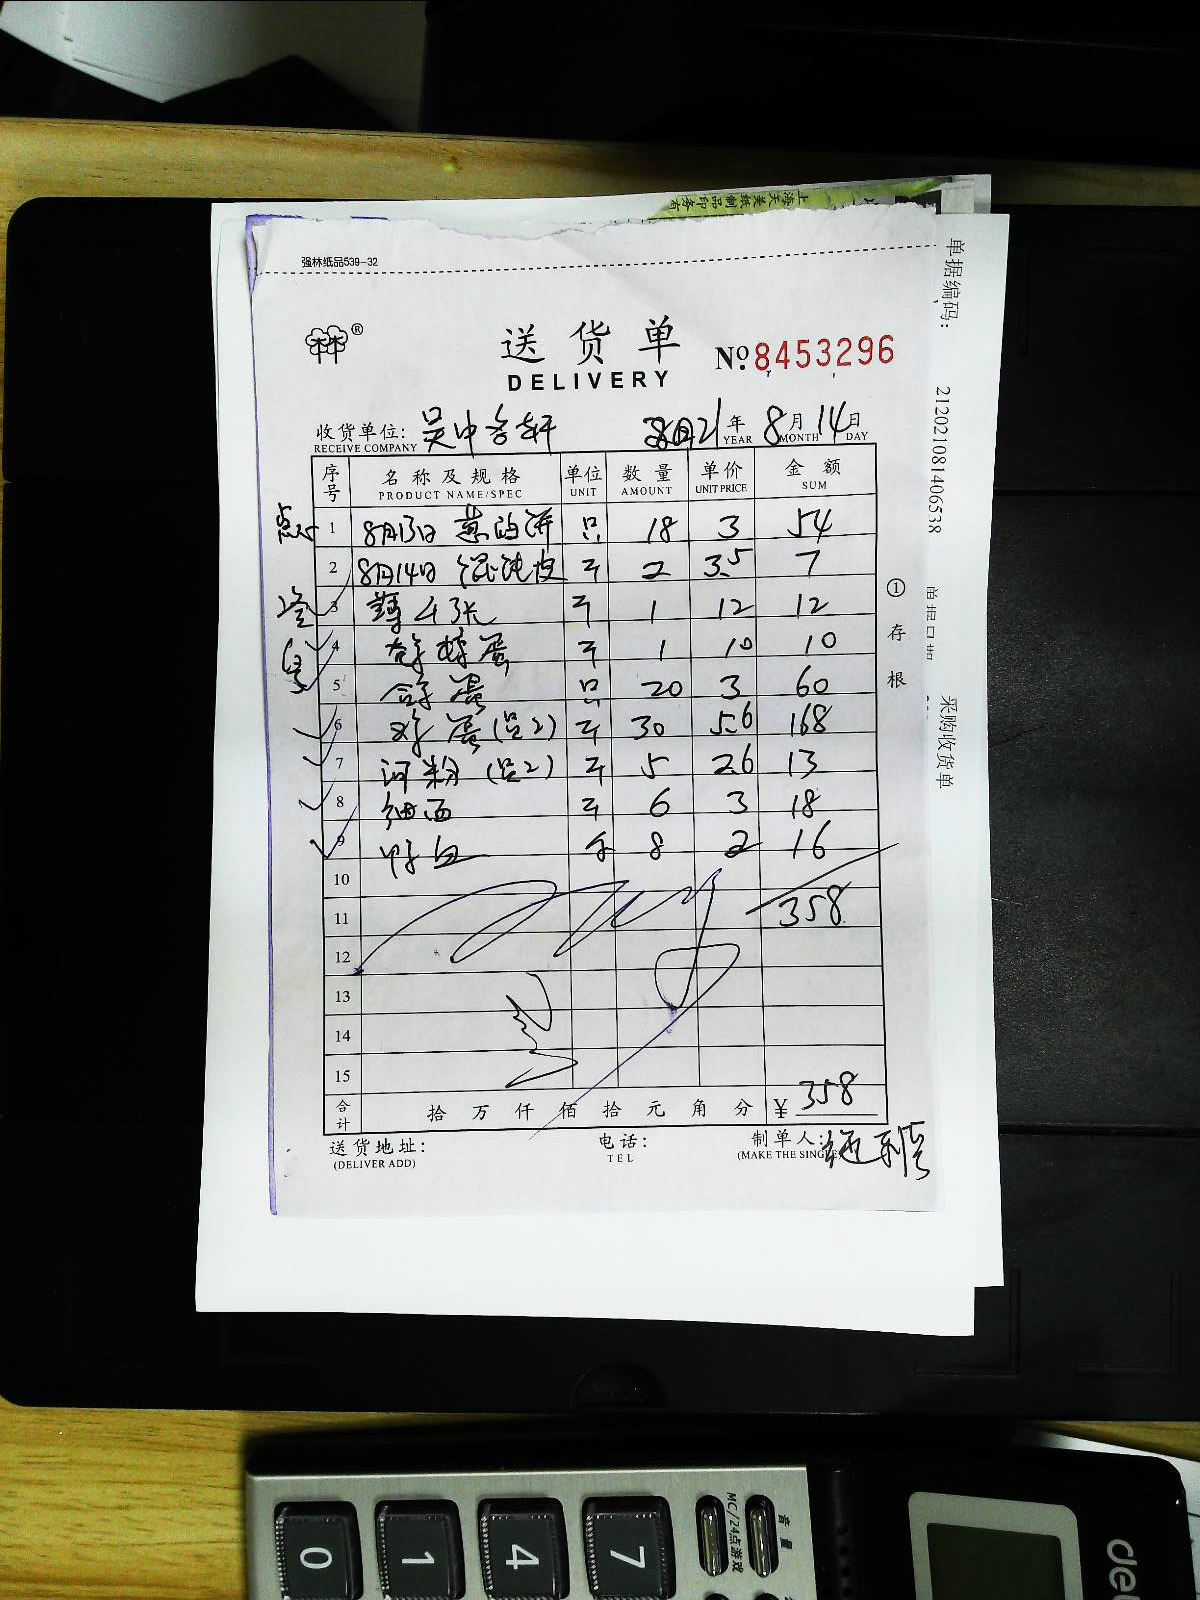 上海天美纸制品印务有
强林纸品539-32
单据编码:
212021081406538
采购收货单
林®
送货单
DELIVERY
No.8453296
收货单位: 吴中
21年 8月14日
RECEIVE COMPANY YEAR MONTH DAY
序号 名称及规格 单位 数量 单价 金额
PRODUCT NAME/SPEC UNIT AMOUNT UNIT PRICE SUM
点心
1 8月13日 饼 只 18 3 54
2 8月14日 馄饨皮 斤 2 3.5 7
3 斤 1 12 12
4 蛋 斤 1 10 10
5 蛋 只 20 3 60
6 鸡蛋 斤 30 5.6 168
7 河粉 斤 5 2.6 13
8 细面 斤 6 3 18
9 鸭血 8 2 16
10
11 358
12
13
14
15
合计 拾 万 仟 佰 拾 元 角 分 ¥ 358
①存根
送货地址: 电话: 制单人:
(DELIVER ADD) TEL (MAKE THE SINGLE
音量
MC/24点游戏
0 1 4 7